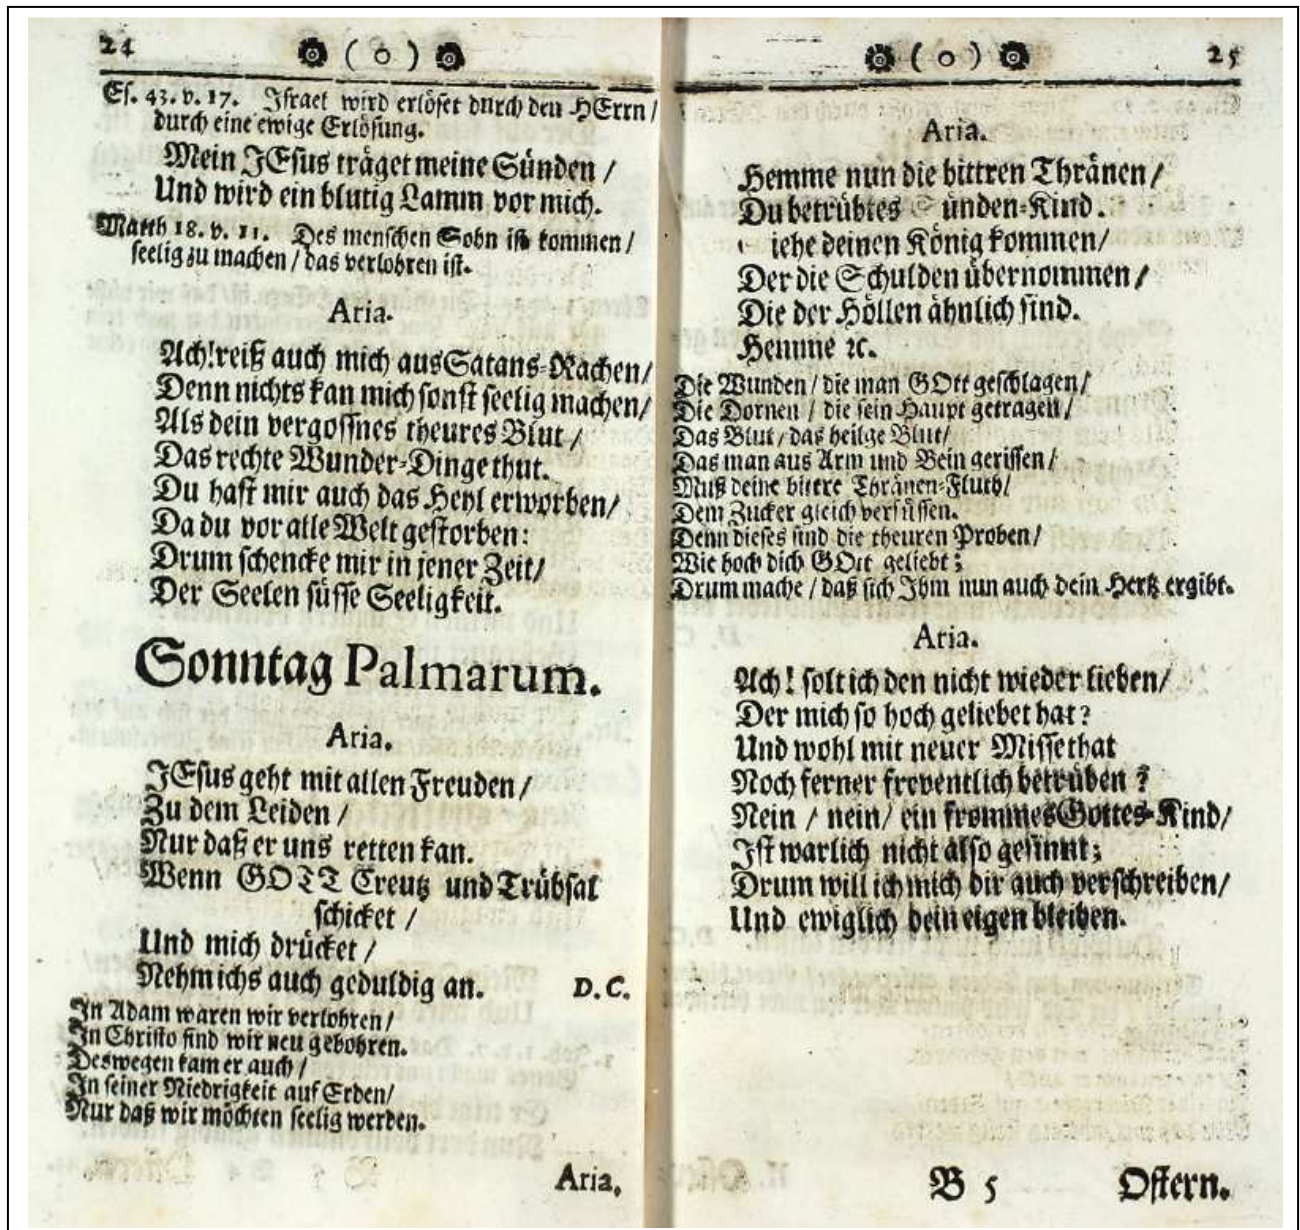 24 ( o )
Es. 43. v. 17. Israel wird erlöset durch den HErrn /
durch eine ewige Erlösung.
Mein JEsus träget meine Sünden /
Und wird ein blutig Lamm vor mich.
Matth 18. v. 11. Des menschen Sohn ist kommen /
seelig zu machen / das verlohren ist.
Aria.
Ach! reiß auch mich aus Satans-Rachen /
Denn nichts kan mich sonst seelig machen /
Als dein vergossnes theures Blut /
Das rechte Wunder-Dinge thut.
Du hast mir auch das Heyl erworben /
Da du vor alle Welt gestorben:
Drum schencke mir in jener Zeit /
Der Seelen süsse Seeligkeit.
Sonntag Palmarum.
Aria.
JEsus geht mit allen Freuden /
Zu dem Leiden /
Nur daß er uns retten kan.
Wenn GOTT Creutz und Trübsal
schicket /
Und mich drücket /
Nehm ichs auch geduldig an. D. C.
In Adam waren wir verlohren /
In Christo sind wir neu gebohren.
Deswegen kam er auch /
In seiner Niedrigkeit auf Erden /
Nur daß wir möchten seelig werden.
Aria,
( o ) 25
Aria.
Hemme nun die bittren Thränen /
Du betrübtes Sünden-Kind.
iehe deinen König kommen /
Der die Schulden übernommen /
Die der Höllen ähnlich sind.
Hemme ꝛc.
Die Wunden / die man GOtt geschlagen /
Die Dornen / die sein Haupt getragen /
Das Blut / das heilge Blut /
Das man aus Arm und Bein gerissen /
Muß deine bittre Thränen-Fluth /
Dem Zucker gleich versüssen.
Denn dieses sind die theuren Proben /
Wie hoch dich GOtt geliebt;
Drum mache / daß sich Ihm nun auch dein Hertz ergibt.
Aria.
Ach! solt ich den nicht wieder lieben /
Der mich so hoch geliebet hat?
Und wohl mit neuer Missethat
Noch ferner freventlich betrüben?
Nein / nein / ein frommes Gottes-Kind /
Ist warlich nicht also gesinnt;
Drum will ich mich dir auch verschreiben /
Und ewiglich dein eigen bleiben.
B 5 Ostern.